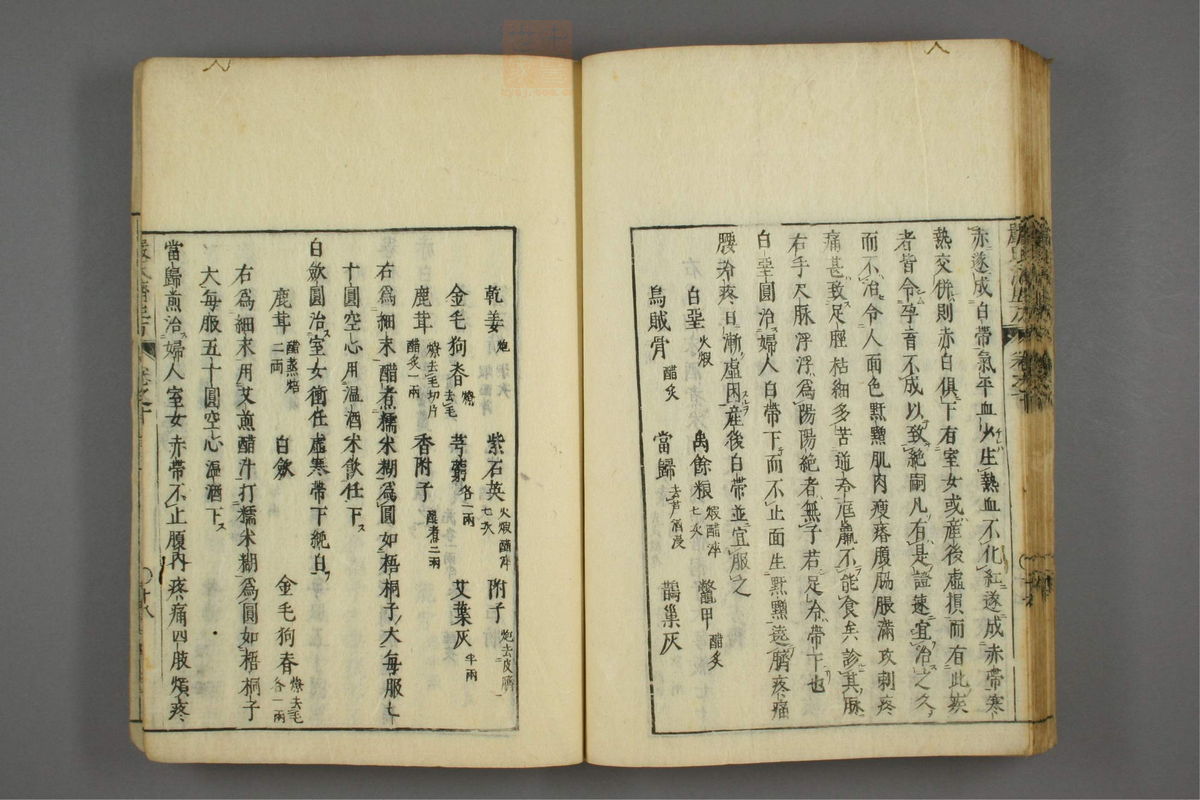 赤遂成白帶氣平血少生熱血不化紅遂成赤帶寒
熱交併則赤白俱下有室女或産後虚損而有此疾
者皆令孕育不成以致絶嗣凡有是證速宜治之久
而不治令人面色䵟黯肌肉瘦瘠腹脇脹滿攻刺疼
痛甚致足脛枯細多苦逆冷尫羸不能食矣診其脉
右手尺脉浮浮爲陽陽絶者無子若足冷帶下也
白堊圓治婦人白帶下而不止面生䵟黯遶臍疼痛
腰冷疼日漸虚困産後白帶並宜服之
白堊火煅 禹餘粮煅醋淬七次 鼈甲醋炙
烏賊骨醋炙 當歸去芦酒浸 鵲巢灰
乾姜炮 紫石英火煅醋淬七次 附子炮去皮臍
金毛狗脊燎去毛 芎藭各一兩 艾葉灰半兩
鹿茸燎去毛切片醋炙一兩 香附子醋煮二兩
右爲細末醋煮糯米糊爲圓如梧桐子大每服七
十圓空心用温酒米飲任下
白歛圓治室女衝任虚寒帶下純白
鹿茸醋蒸焙二兩 白歛 金毛狗脊燎去毛各一兩
右爲細末用艾煎醋汁打糯米糊爲圓如梧桐子
大每服五十圓空心温酒下
當歸煎治婦人室女赤帶不止腹内疼痛四肢煩疼